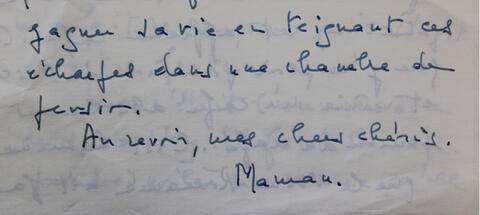 gagner sa vie en teignant ces
écharpes dans une chambre de
persir.
Au revoir, mes chers chéris.
Maman.